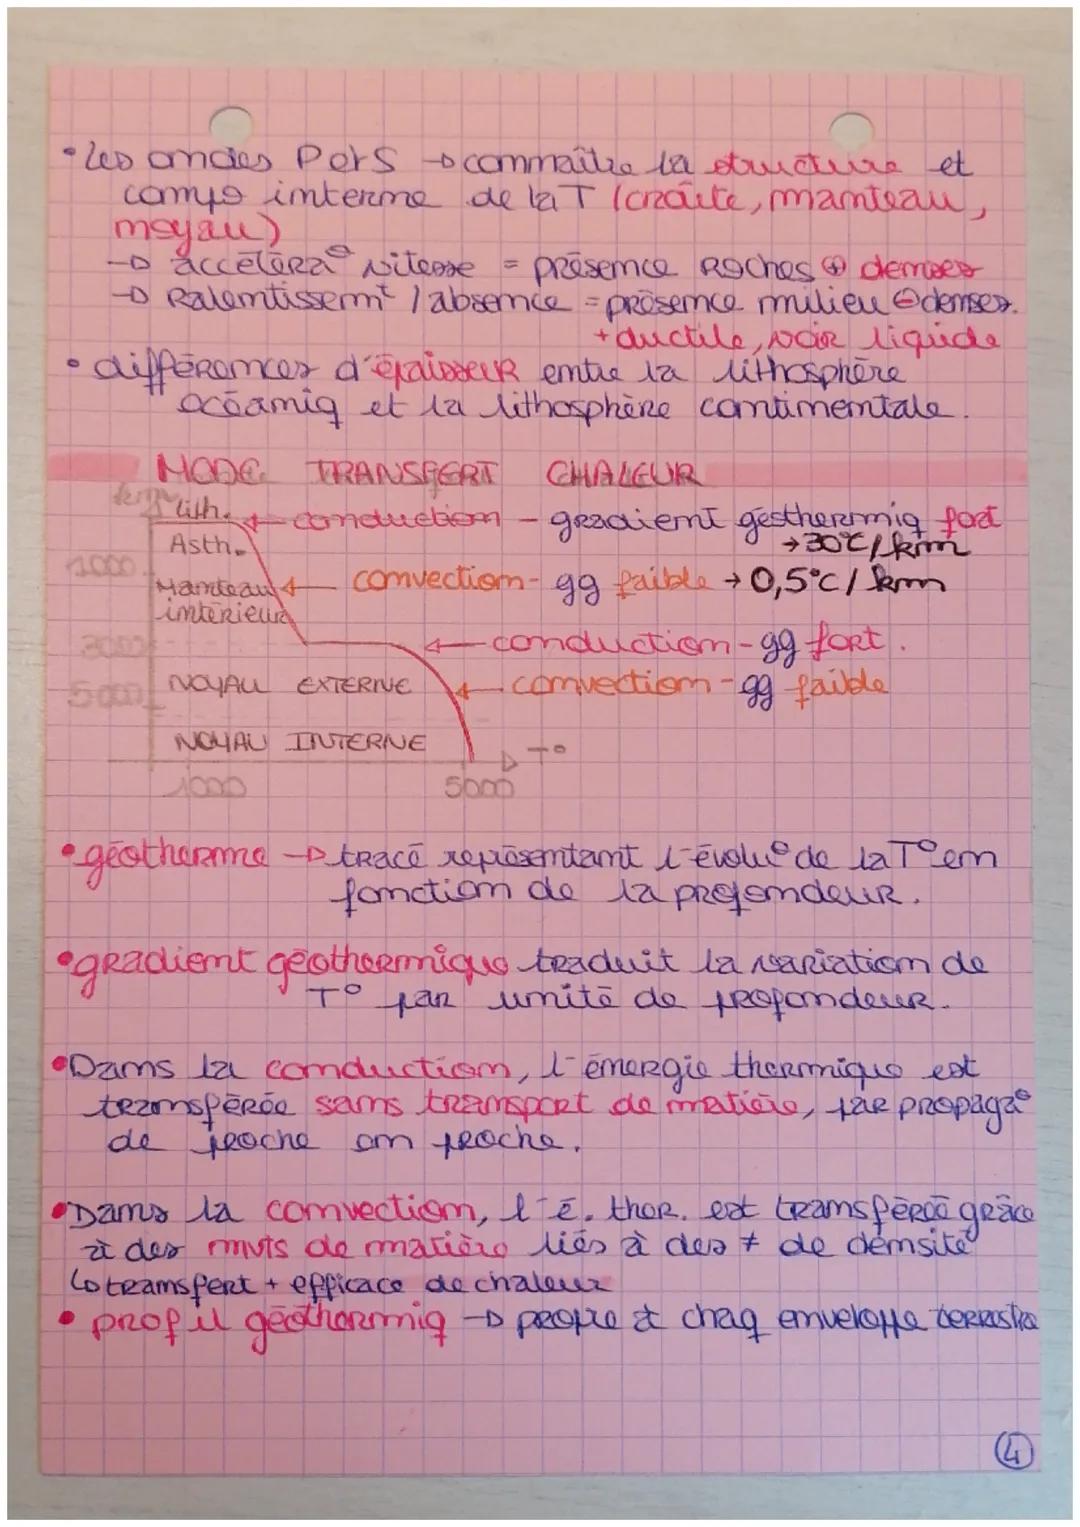 • Les ondes P et S → connaître la structure et
compo interne de la T (croûte, manteau,
noyau)
→ accéléra° vitesse = présence Roches ⊕ denses
→ Ralentissemt / absence = présence milieu ⊖ denses.
+ ductile, voir liquide
• différences d'épaisseur entre la lithosphère
océaniq et la lithosphère continentale.
MODE TRANSFERT CHALEUR
km
Lith. ← conduction - gradient géothermiq fort
→ 30°C/km
Asth.
1000
Manteau ← convection - gg faible → 0,5°C/km
intérieur
3000 ← conduction - gg fort.
5000 NOYAU EXTERNE ← convection - gg faible
NOYAU INTERNE T°
1000 5000
• géotherme → tracé représentant l'évolu° de la T° en
fonction de la profondeur.
• gradient géothermique traduit la variation de
T° par unité de profondeur.
• Dans la conduction, l'énergie thermique est
transférée sans transport de matière, par propaga°
de proche en proche.
• Dans la convection, l'é. ther. est transférée grâce
à des mvts de matière liés à des ≠ de densité
↳ transfert + efficace de chaleur
• profil géothermiq → propre à chaq enveloppe terrestre
4